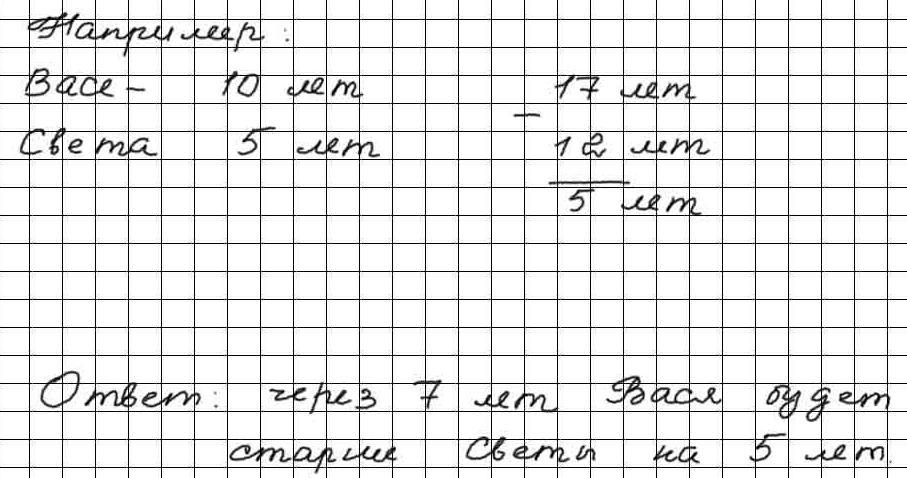 Например:
Васе - 10 лет 17 лет
-
Света 5 лет 12 лет
5 лет
Ответ: через 7 лет Вася будет
старше Светы на 5 лет.